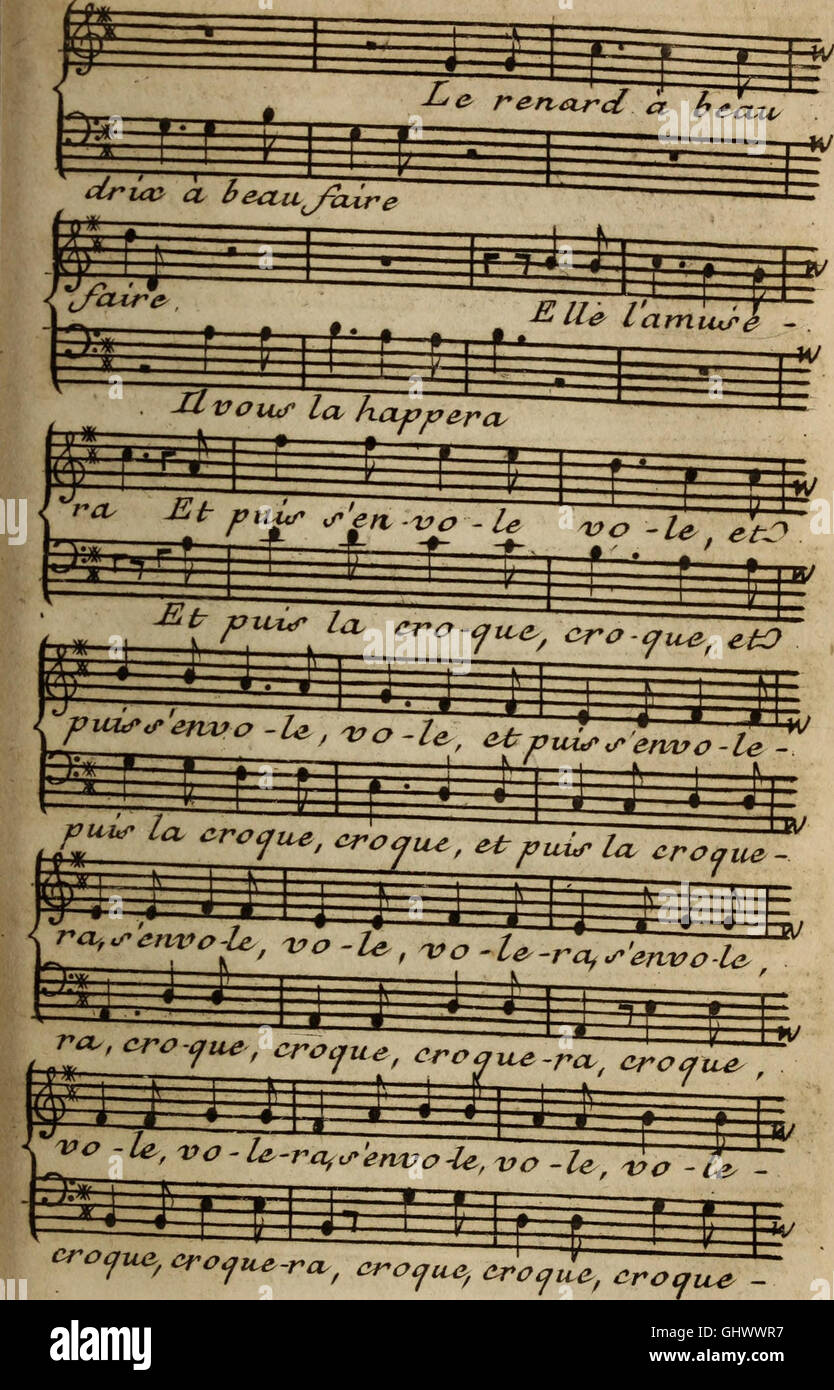 Le renard à beau
drix à beau faire
faire. Elle l'amuse -
Il vous la happera
ra Et puis s'en-vo-le vo-le, et
Et puis la cro-que, cro-que, et
puis s'envo-le, vo-le, et puis s'envo-le-
puis la croque, croque, et puis la croque-
ra, s'envo-le, vo-le, vo-le-ra, s'envo-le,
ra, cro-que, croque, croque-ra, croque,
vo-le, vo-le-ra, s'envo-le, vo-le, vo-le-
croque, croque-ra, croque, croque, croque-
alamy
Image ID: GHWWR7
www.alamy.com